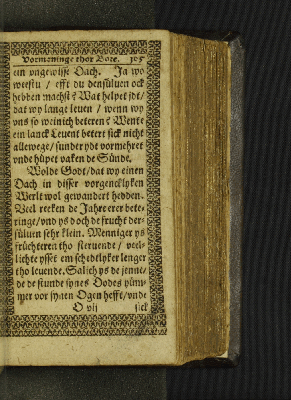 Vormaninge thor Bote. 105
ein vngewisse Dach. Ja wo
weestu / efft du densüluen ock
hebben machst? Wat helpet jdt /
dat wy lange leuen / wenn wy
vns so weinich beteren? Wente
ein lanck Leuent betert sick nicht
allewege / sunder ydt vormehret
vnde hüpet vaken de Sünde.
Wolde Godt / dat wy einen
Dach in disser vorgencklyken
Werlt wol gewandert hedden.
Veel reken de Jahre erer bete-
ringe / vnd ys doch de frucht der-
süluen sehr klein. Menniger ys
früchteren tho steruende / veel-
lichte ysset em schedelyker lenger
tho leuende. Salich ys de jenne /
de de stunde synes Dodes ylüm-
mer vor synen Ogen hefft / vnde
O vij sick